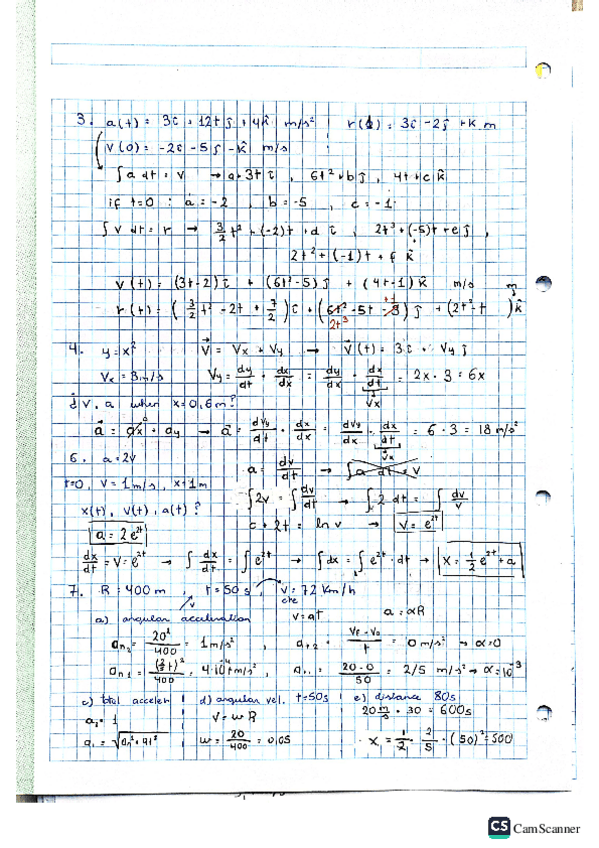 3. a(t) = 3î + 12t ĵ + 4k̂ m/s² r(1) = 3î - 2ĵ + k m
v(0) = -2î - 5ĵ - k̂ m/s
∫a dt = v → a+3t î , 6t²+b ĵ , 4t+c k̂
if t=0 : a = -2 , b = -5 , c = -1
∫v dt = r → 3/2 t² + (-2)t + d î , 2t³ + (-5)t + e ĵ ,
2t² + (-1)t + f k̂
v(t) = (3t-2) î + (6t²-5) ĵ + (4t-1) k̂ m/s
r(t) = (3/2 t² - 2t + 7/2) î + (2t³ - 5t + 1) ĵ + (2t² - t ) k̂ m
4. y = x² v⃗ = Vx + Vy → v⃗(t) = 3î + Vy ĵ
Vx = 3m/s Vy = dy/dt · dx/dx = dy/dx · dx/dt = 2x · 3 = 6x
Vx
¿ v, a when x = 0,6m?
a⃗ = ax + ay → a⃗ = dVy/dt · dx/dx = dVy/dx · dx/dt = 6 · 3 = 18 m/s²
Vx
6. a = 2v a = dv/dt → ∫a dt = v
t=0, v = 1m/s, x = 1m ∫2v = ∫dv/dt → ∫2 dt = ∫dv/v
x(t), v(t), a(t) ? c + 2t = ln v → v = e²ᵗ
a = 2e²ᵗ
dx/dt = v = e²ᵗ → ∫dx/dt = ∫e²ᵗ → ∫dx = ∫e²ᵗ · dt → x = 1/2 e²ᵗ + a
7. R = 400 m , t = 50 s , v = 72 Km/h
cte
a) angular acceleration v = at a = αR
an₂ = 20²/400 = 1 m/s² , at2 = vf - vo/t = 0 m/s² → α = 0
an1 = (2/5 t)²/400 = 4·10⁻⁴ t m/s² , 20-0/50 = 2/5 m/s² → α = 10⁻³
c) total acceler d) angular vel. t=50s e) distance 80s
a2 = 1 v = w R 20 m/s · 30 = 600s
a1 = √an² + at² w = 20/400 = 0,05 x1 = 1/2 · 2/5 · (50)² = 500
CS CamScanner